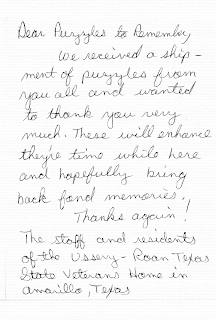 Dear Puzzles to Remember,
We received a ship-
ment of puzzles from
you all and wanted
to thank you very
much. These will enhance
they're time while here
and hopefully bring
back fond memories.
Thanks again!
The staff and residents
of the Ussery-Roan Texas
State Veterans Home in
Amarillo, Texas